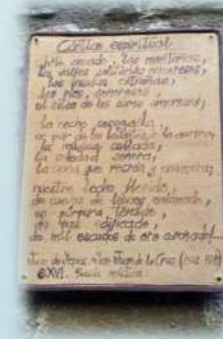 Cántico espiritual
Mi amado, las montañas,
los valles solitarios nemorosos,
las ínsulas extrañas,
los ríos sonorosos
el silbo de los aires amorosos,
la noche sosegada,
en par de los levantes de la aurora,
la música callada,
la soledad sonora,
la cena que recrea y enamora;
nuestro lecho florido,
de cuevas de leones enlazado,
en púrpura tendido,
de paz edificado,
de mil escudos de oro coronado/...
San Juan de la Cruz (1542-1591)
S.XVI. Poesía mística.